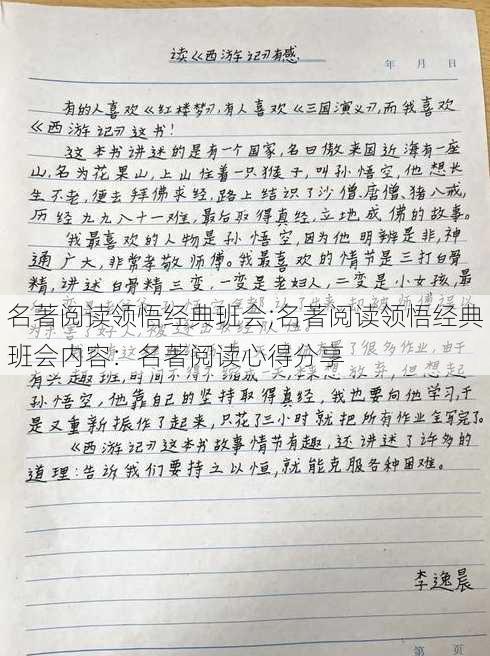 读《西游记》有感
年 月 日
有的人喜欢《红楼梦》,有人喜欢《三国演义》,而我喜欢
《西游记》这书!
这本书讲述的是有一个国家,名曰傲来国近海有一座
山,名为花果山,上山住着一只猴子,叫孙悟空,他想长
生不老,便去拜佛求经,路上结识了沙僧、唐僧、猪八戒,
历经九九八十一难,最后取得真经,立地成佛的故事。
我最喜欢的人物是孙悟空,因为他明辨是非,神
通广大,非常孝敬师傅。我最喜欢的情节是三打白骨
精,讲述白骨精三变,一变是老妇人,二变是小女孩,最
名著阅读领悟经典班会;名著阅读领悟经典
班会内容:名著阅读心得分享
了很多作业,由于
有兴趣班,时间不得不缩成一天,
想放弃,但想起
孙悟空,他靠自己的坚持取得真经,我也要向他学习,于
是又重新振作了起来,只花了三小时就把所有作业全写完了。
《西游记》这本书故事情节有趣,还讲述了许多的
道理:告诉我们要持之以恒,就能克服各种困难。
李逸晨
第 页